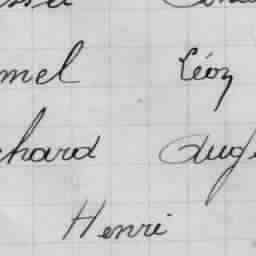 mel Léon
chard Aug
Henri